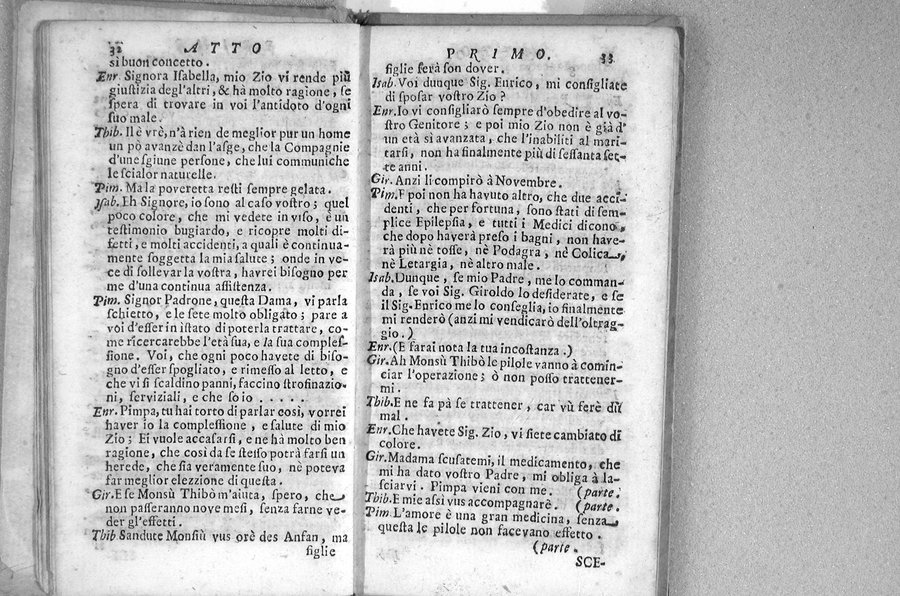 32 ATTO
si buon concetto.
Enr. Signora Isabella, mio Zio vi rende più
giustizia degl'altri, & hà molto ragione, se
spera di trovare in voi l'antidoto d'ogni
suo male.
Thib. Il è vrè, n'à rien de meglior pur un home
un pò avanzè dan l'asge, che la Compagnie
d'une sgiune persone, che lui communiche
le scialor naturelle.
Pim. Ma la poveretta resti sempre gelata.
Isab. Eh Signore, io sono al caso vostro; quel
poco colore, che mi vedete in viso, è un
testimonio bugiardo, e ricopre molti di-
fetti, e molti accidenti, a quali è continua-
mente soggetta la mia salute; onde in ve-
ce di sollevar la vostra, havrei bisogno per
me d'una continua assistenza.
Pim. Signor Padrone, questa Dama, vi parla
schietto, e le sete molto obligato; pare a
voi d'esser in istato di poterla trattare, co-
me ricercarebbe l'età sua, e la sua comples-
sione. Voi, che ogni poco havete di biso-
gno d'esser spogliato, e rimesso al letto, e
che vi si scaldino panni, faccino strofinazio-
ni, serviziali, e che so io . . . . .
Enr. Pimpa, tu hai torto di parlar così, vorrei
haver io la complessione, e salute di mio
Zio; Ei vuole accasarsi, e ne hà molto ben
ragione, che così da se stesso potrà farsi un
herede, che sia veramente suo, nè poteva
far meglior elezzione di questa.
Gir. E se Monsù Thibò m'aiuta, spero, che
non passeranno nove mesi, senza farne ve-
der gl'effetti.
Thib Sandute Monsiù vus orè des Anfan, ma
figlie
PRIMO. 33
figlie serà son dover.
Isab. Voi dunque Sig. Enrico, mi consigliate
di sposar vostro Zio?
Enr. Io vi consigliarò sempre d'obedire al vo-
stro Genitore; e poi mio Zio non è già d'
un età si avanzata, che l'inabiliti al mari-
tarsi, non ha finalmente più di sessanta set-
te anni.
Gir. Anzi li compirò à Novembre.
Pim. E poi non ha havuto altro, che due acci-
denti, che per fortuna, sono stati di sem-
plice Epilepsia, e tutti i Medici dicono,
che dopo haverà preso i bagni, non have-
rà più nè tosse, nè Podagra, nè Colica,
nè Letargia, nè altro male.
Isab. Dunque, se mio Padre, me lo comman-
da, se voi Sig. Giroldo lo desiderate, e se
il Sig. Enrico me lo conseglia, io finalmente
mi renderò (anzi mi vendicarò dell'oltrag-
gio.)
Enr. (E farai nota la tua incostanza.)
Gir. Ah Monsù Thibò le pilole vanno à comin-
ciar l'operazione; ò non posso trattener-
mi.
Thib. E ne fa pà se trattener, car vù ferè du
mal.
Enr. Che havete Sig. Zio, vi siete cambiato di
colore.
Gir. Madama scusatemi, il medicamento, che
mi ha dato vostro Padre, mi obliga à la-
sciarvi. Pimpa vieni con me. (parte.
Thib. E mie assi vus accompagnarè. (parte.
Pim L'amore è una gran medicina, senza
questa le pilole non facevano effetto.
(parte.
SCE-